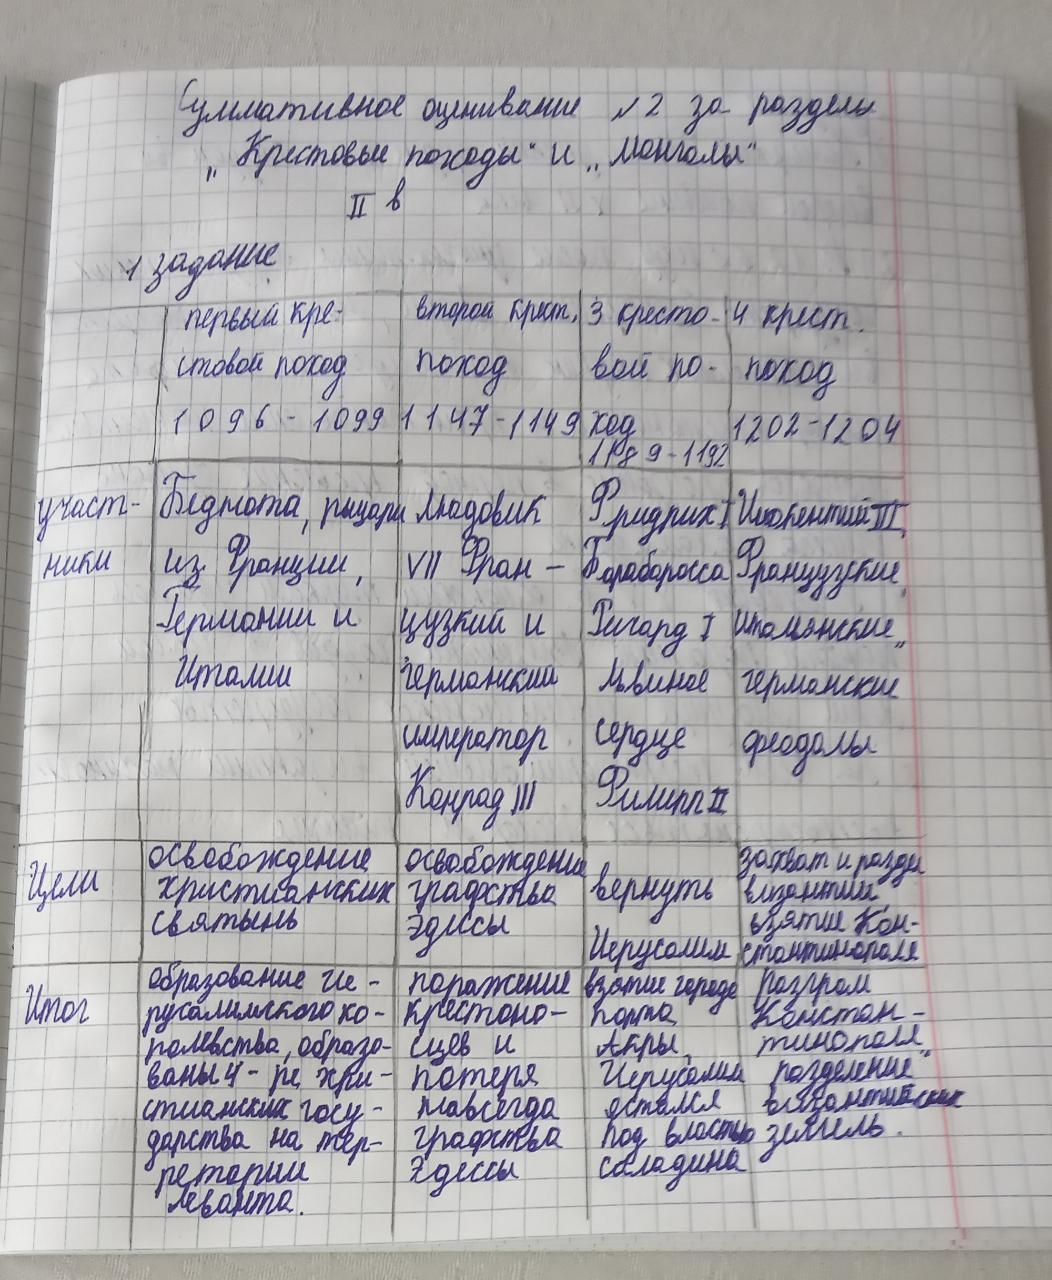 Суммативное оценивание №2 за разделы
„Крестовые походы" и „Монголы"
II в
1 задание
первый кре-
стовой поход
1096-1099
второй крест.
поход
1147-1149
3 кресто-
вой по-
ход
1189-1192
4 крест.
поход
1202-1204
участ-
ники
Беднота, рыцари
из Франции,
Германии и
Италии
Людовик
VII Фран-
цузкий и
германский
император
Конрад III
Фридрих I
Барабаросса
Ричард I
Львиное
сердце
Филипп II
Инокентий III,
Французские,
итальянские,,
германские
феодалы
Цели
освобождение
христианских
святынь
освобождение
графства
Эдессы
вернуть
Иерусалим
захват и разде
византии
взятие Кон-
стантинополя
Итог
образование Ие-
русалимского ко-
ролевства, образо-
ваны 4-ре хри-
стианских госу-
дарства на тер-
ретарии
Леванта.
поражение
крестоно-
сцев и
потеря
навсегда
графства
Эдессы
взятие города
порта
Акры,
Иерусалим
остался
под властью
саладина
разгром
Констан-
тинополя,,
разделение
византийских
земель.